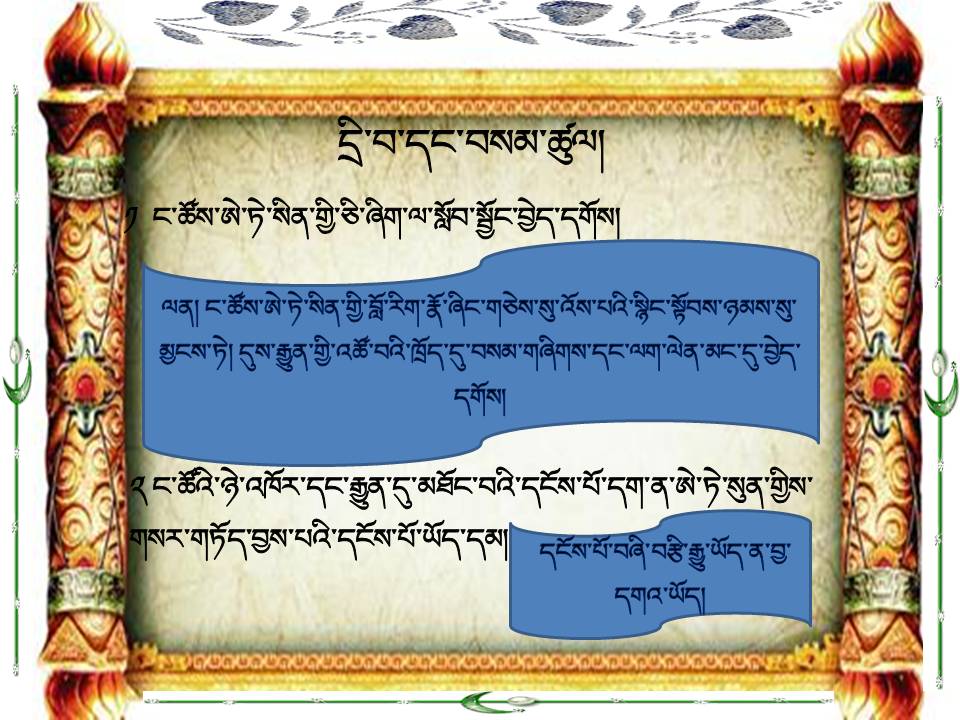 དྲི་བ་དང་བསམ་ཚུལ།
༡ ང་ཚོས་ཨེ་ཏེ་སིན་གྱི་ཅི་ཞིག་ལ་སློབ་སྦྱོང་བྱེད་དགོས།
ལན། ང་ཚོས་ཨེ་ཏེ་སིན་གྱི་བློ་རིག་རྣོ་ཞིང་གཅེས་སུ་འོས་པའི་སྙིང་སྟོབས་ཉམས་སུ་
མྱངས་ཏེ། དུས་རྒྱུན་གྱི་འཚོ་བའི་ཁྲོད་དུ་བསམ་གཞིགས་དང་ལག་ལེན་མང་དུ་བྱེད་
དགོས།
༢ ང་ཚོའི་ཉེ་འཁོར་དང་རྒྱུན་དུ་མཐོང་བའི་དངོས་པོ་དག་ན་ཨེ་ཏེ་སུན་གྱིས་
གསར་གཏོད་བྱས་པའི་དངོས་པོ་ཡོད་དམ།
དངོས་པོ་བཞི་བརྩི་རྒྱུ་ཡོད་ན་བྱ་
དགའ་ཡོད།